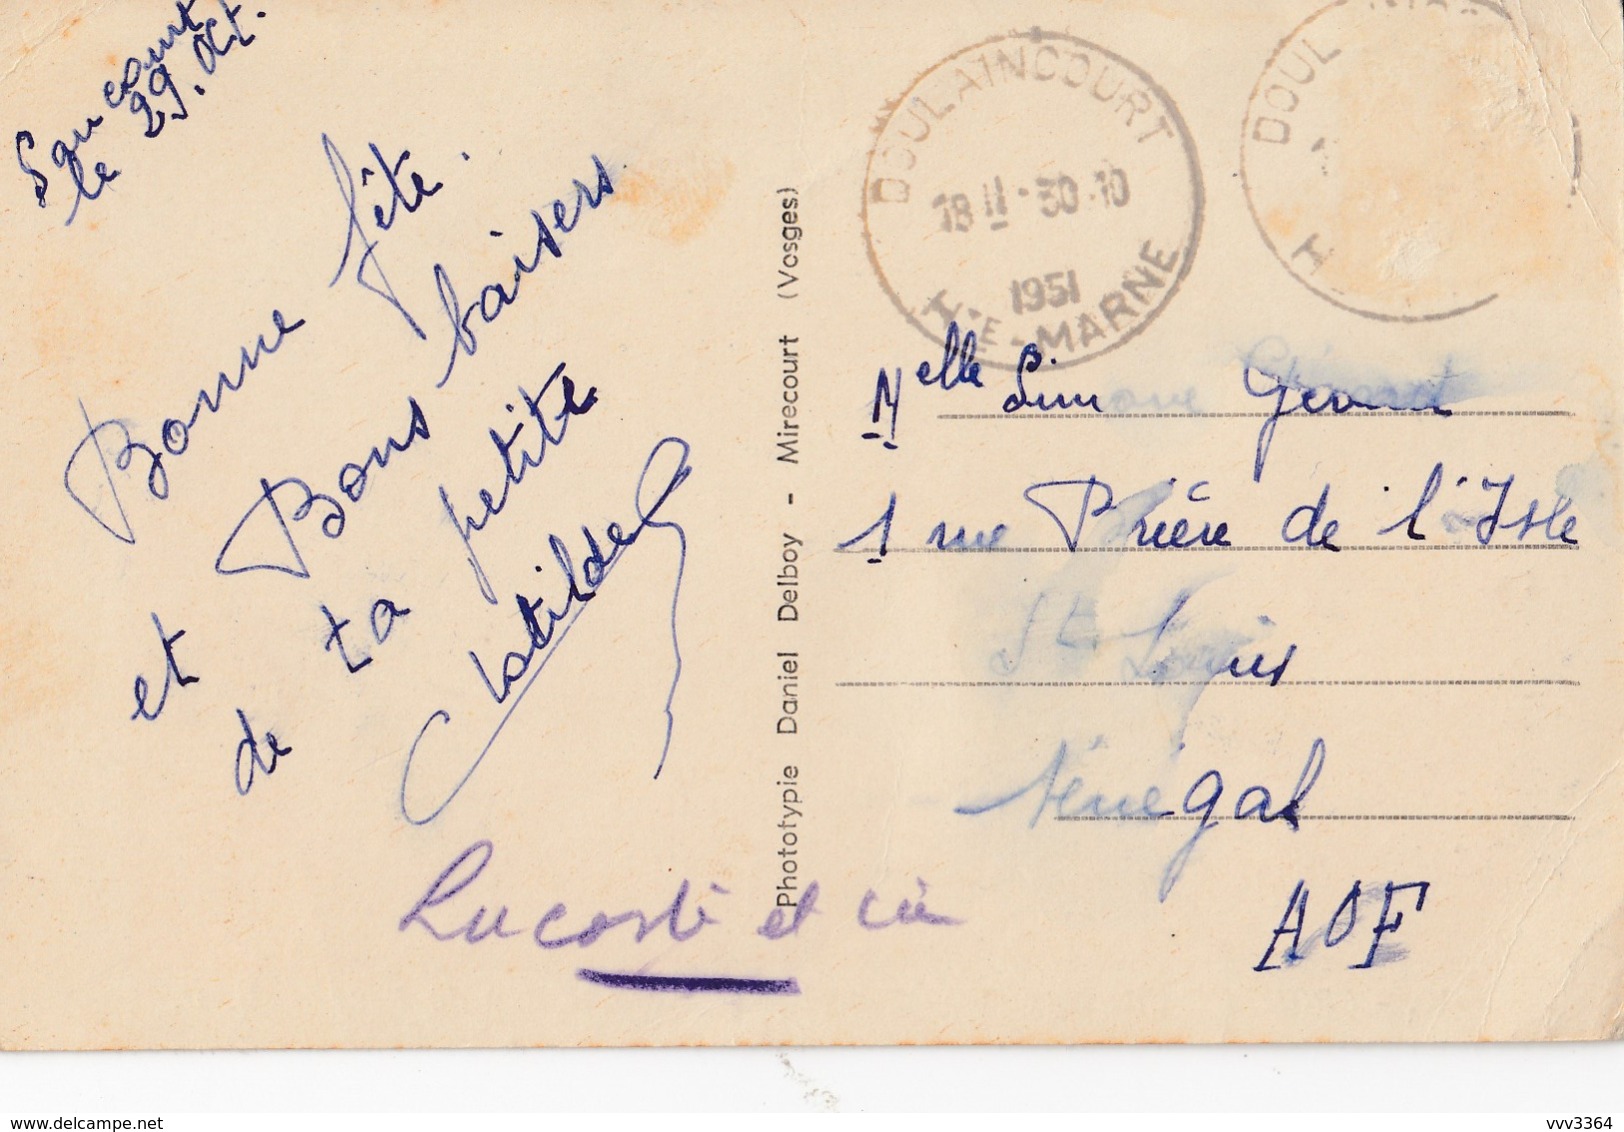 Saucourt
le 29. Oct.
Bonne fête.
et Bons baisers
de ta petite
Clotilde
Phototypie Daniel Delboy - Mirecourt (Vosges)
DOULAINCOURT
18 H - 30.10
1951
HTE-MARNE
DOUL
H
Melle Simone Gérard
1 rue Prière de l'Isle
St Louis
Sénégal
AOF
et cie
vvv3364